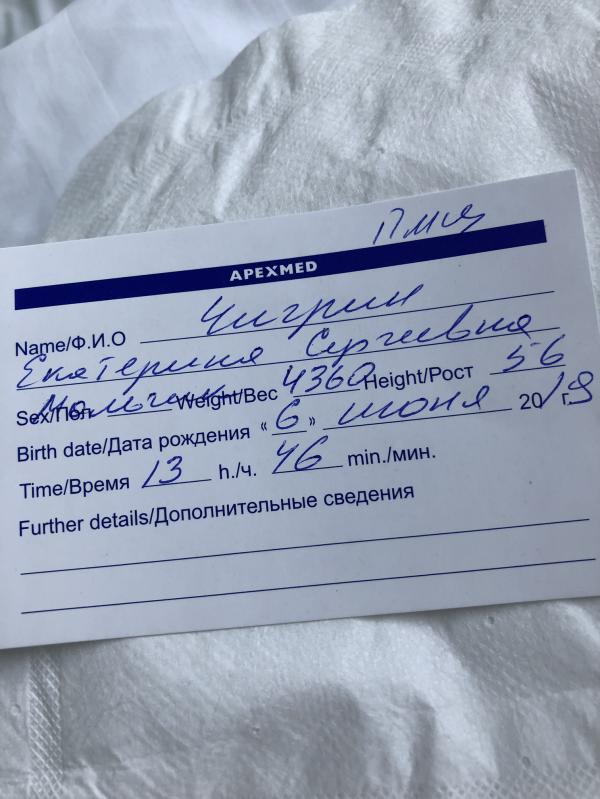 ПМЦ
APEXMED
Name/Ф.И.О Чигрин
Екатерина Сергеевна
Sex/Пол Мальчик Weight/Вес 4360 Height/Рост 56
Birth date/Дата рождения « 6 » июня 2019 г.
Time/Время 13 h./ч. 46 min./мин.
Further details/Дополнительные сведения